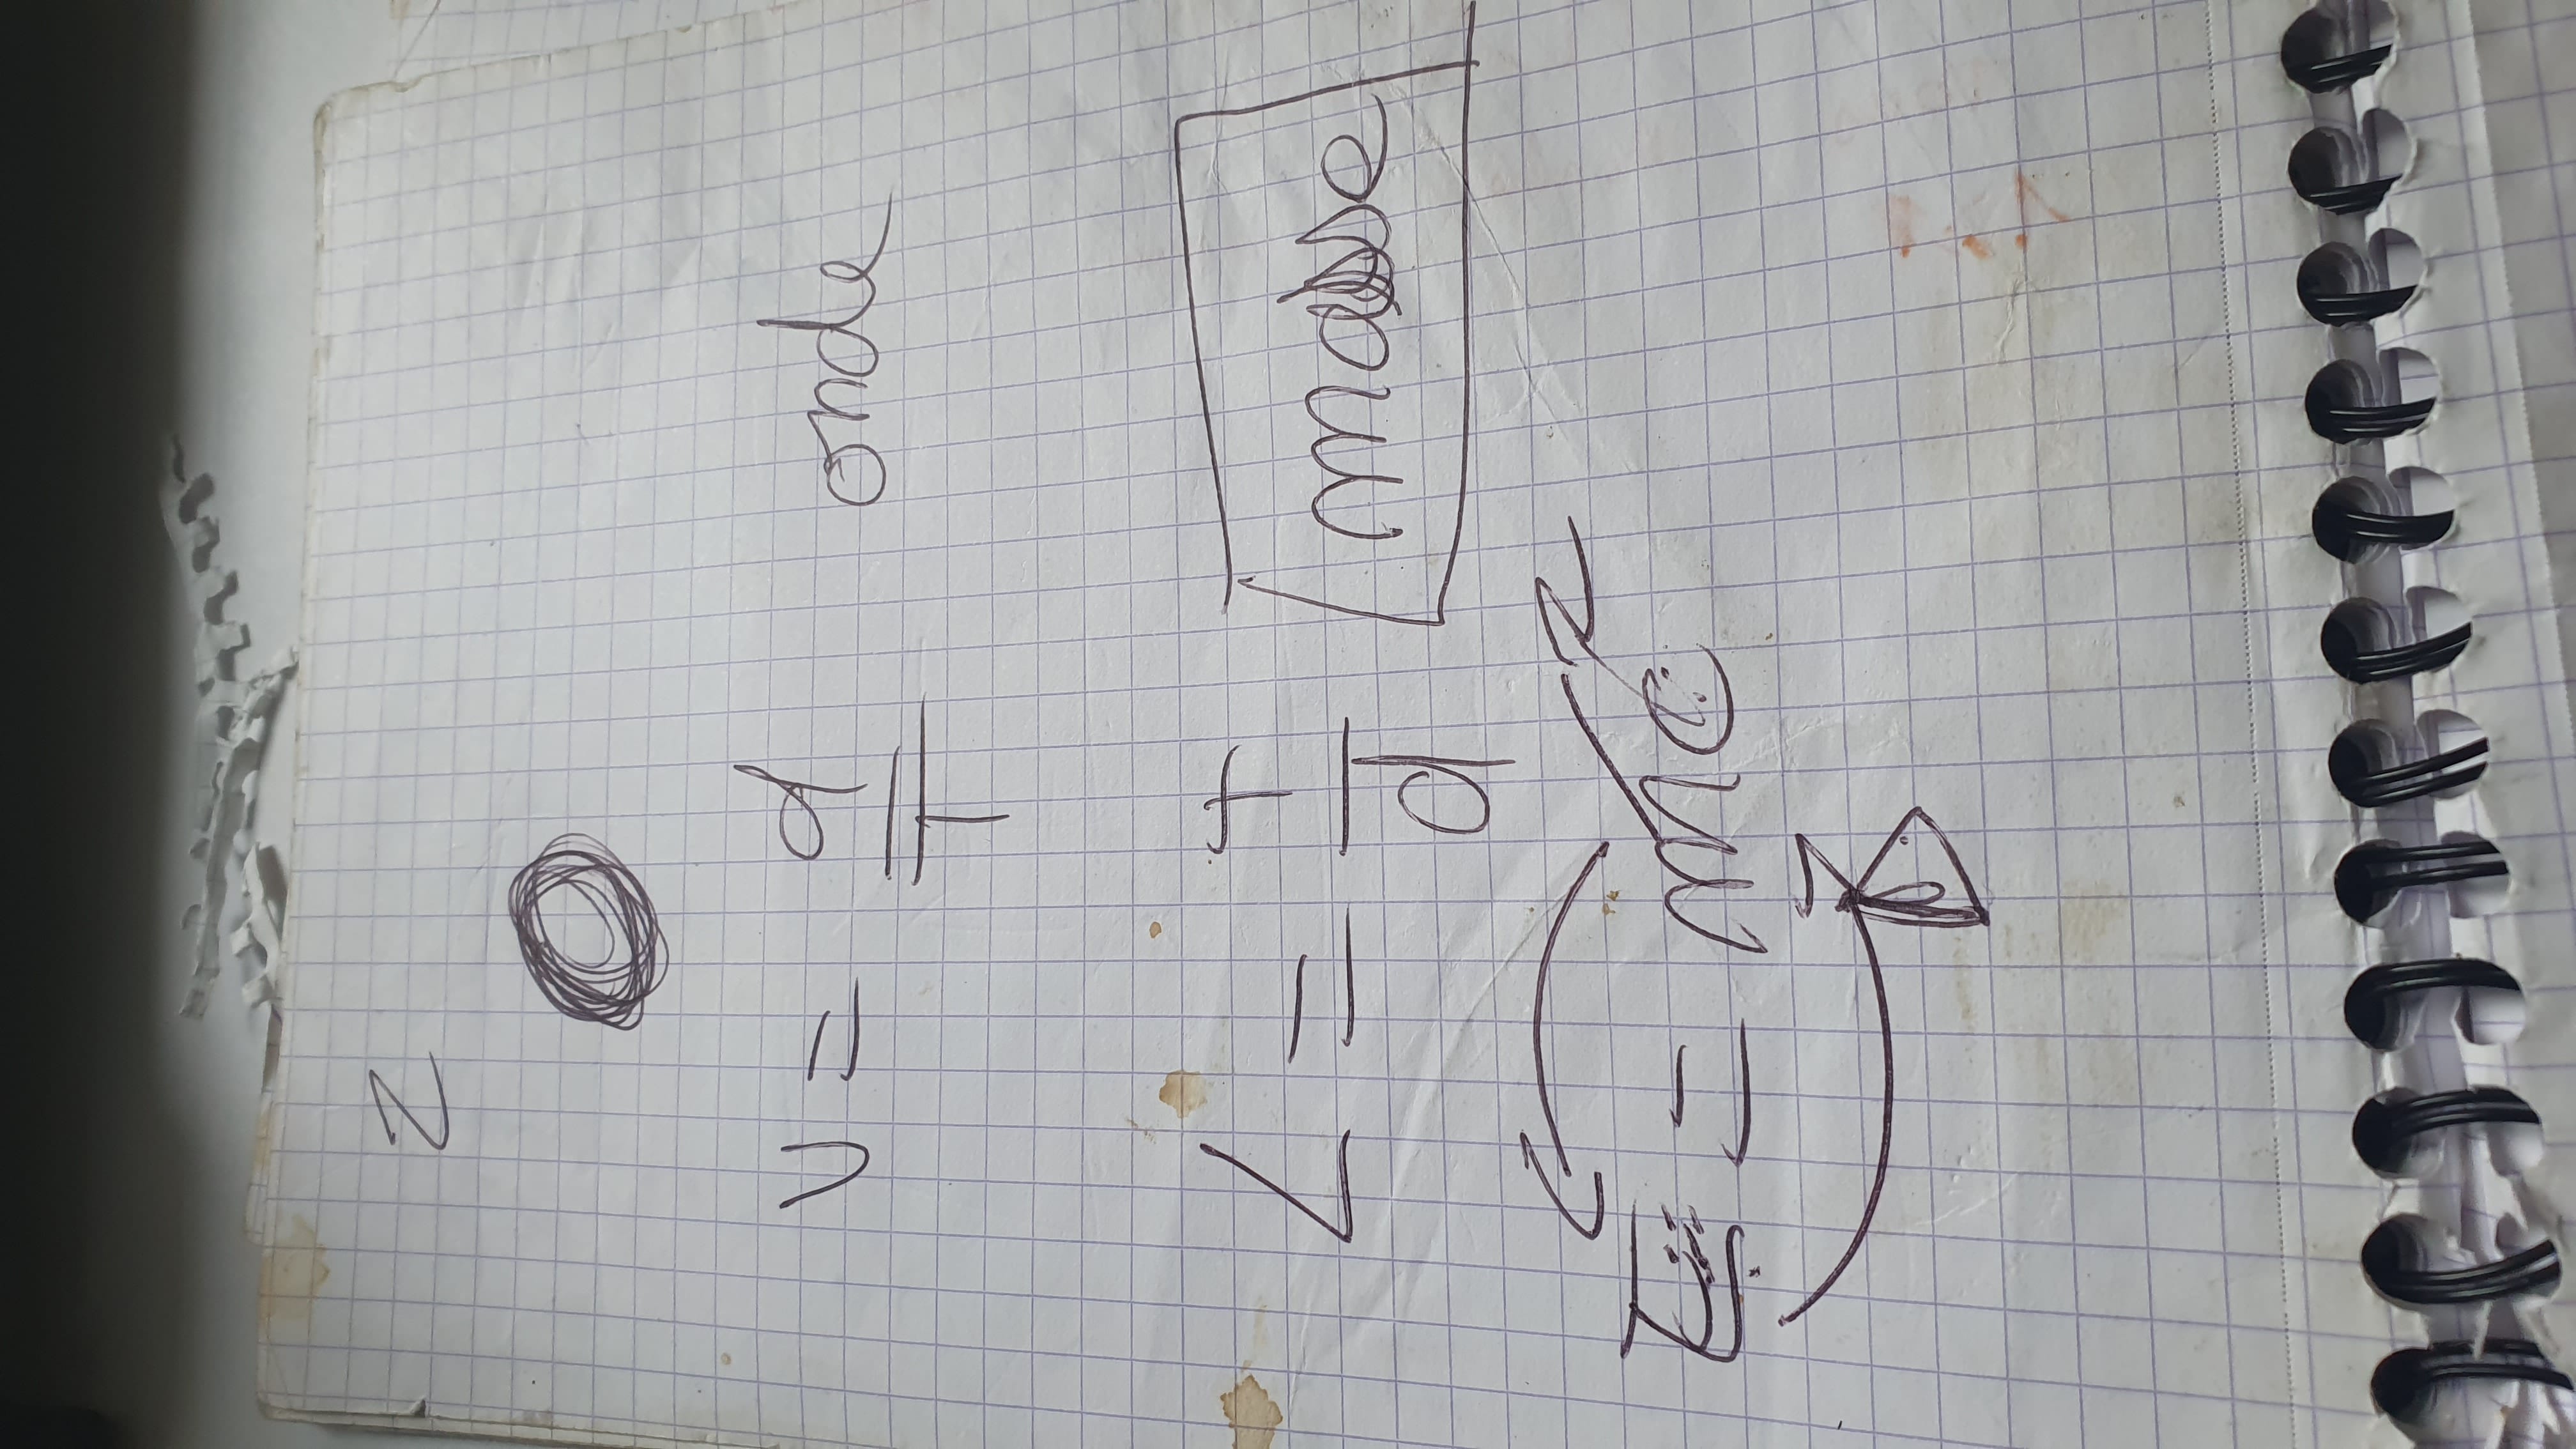 2
V = d/T onde
L = T/d masse
E = mc²